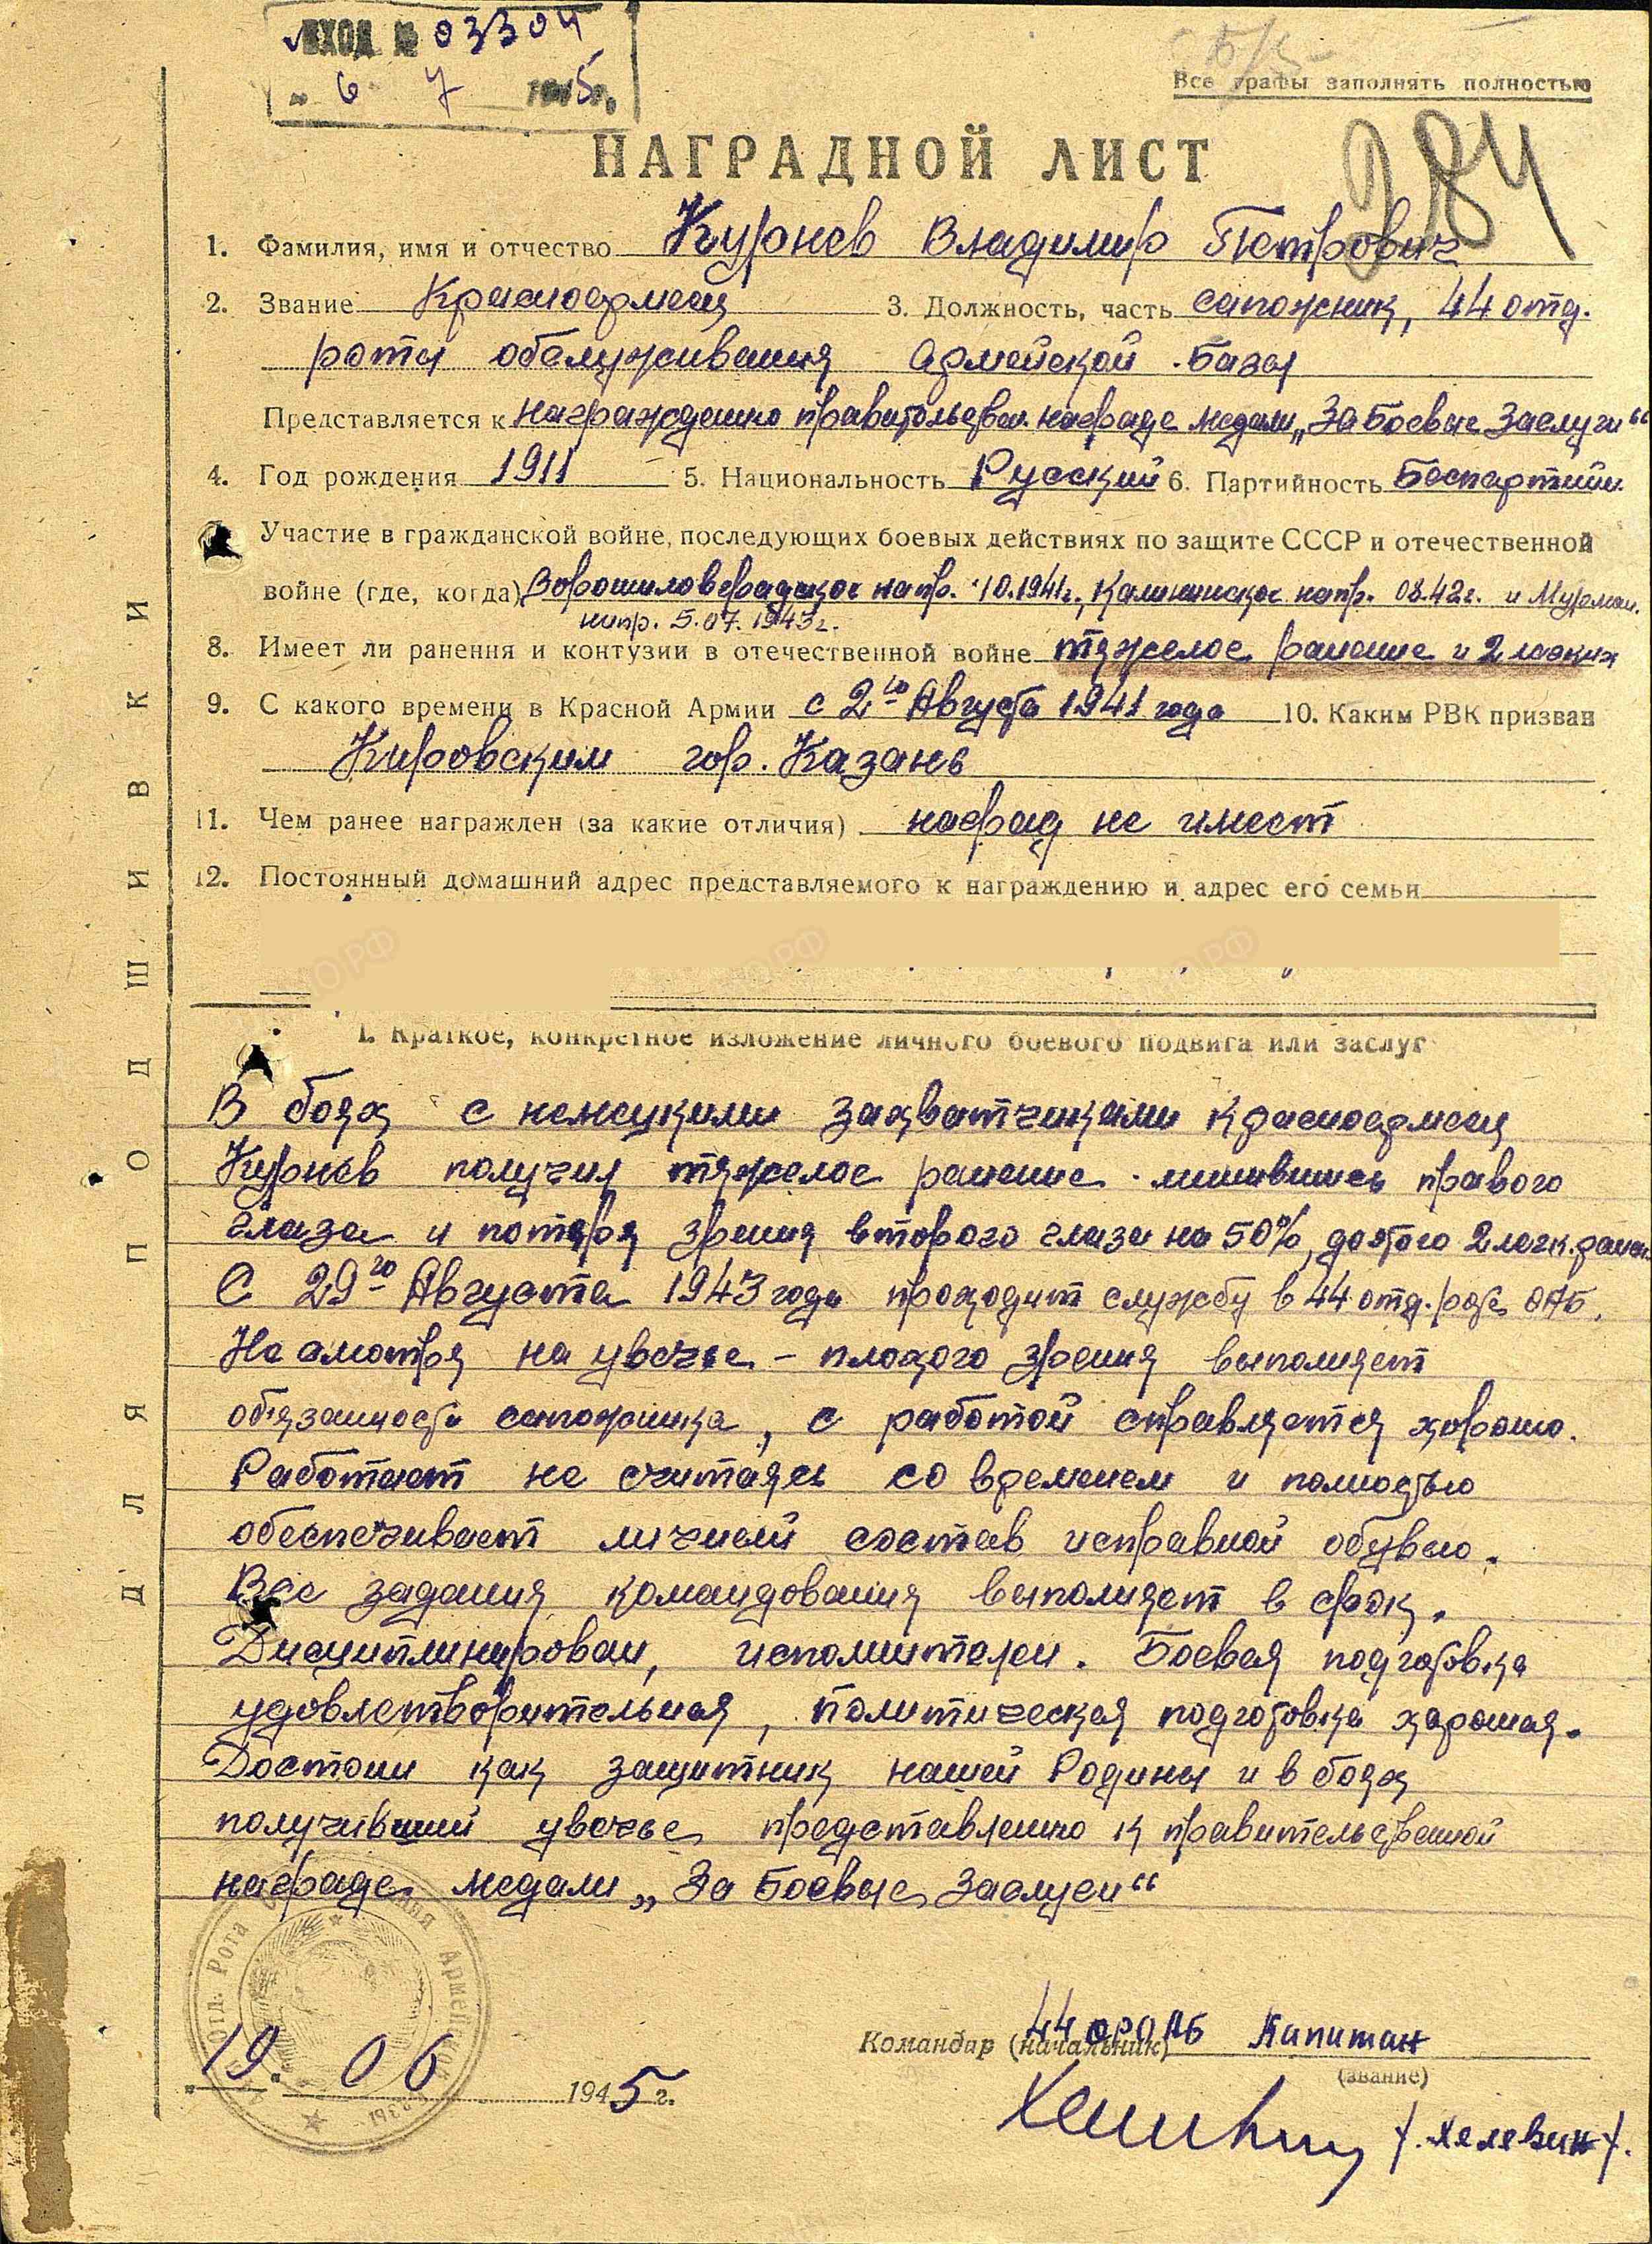 ВХОД № 03304
"6" 7 1945 г.
Все графы заполнять полностью
284
НАГРАДНОЙ ЛИСТ
1. Фамилия, имя и отчество Курнев Владимир Петрович
2. Звание Красноармеец 3. Должность, часть сапожник, 44 отд.
роты обслуживания Армейской Базы
Представляется к награждению правительствен. награде медали „За Боевые Заслуги“
4. Год рождения 1911 5. Национальность Русский 6. Партийность Беспартийн.
Участие в гражданской войне, последующих боевых действиях по защите СССР и отечественной
войне (где, когда) Ворошиловградское напр. 10.1941г., Калининское напр. 08.42г. и Мурман.
напр. 5.07.1943г.
8. Имеет ли ранения и контузии в отечественной войне тяжелое ранение и 2 легких
9. С какого времени в Красной Армии с 2го Августа 1941 года 10. Каким РВК призван
Кировским гор. Казань
11. Чем ранее награжден (за какие отличия) наград не имеет
12. Постоянный домашний адрес представляемого к награждению и адрес его семьи
I. Краткое, конкретное изложение личного боевого подвига или заслуг
В боях с немецкими захватчиками красноармеец
Курнев получил тяжелое ранение лишившись правого
глаза и потеря зрения второго глаза на 50%, до этого 2 легк. ранен.
С 29го Августа 1943 года проходит службу в 44 отд. роте ОАБ.
Не смотря на увечье – плохого зрения выполняет
обязаности сапожника, с работой справляется хорошо.
Работает не считаясь со временем и полностью
обеспечивает личный состав исправной обувью.
Все задания командования выполняет в срок.
Дисциплинирован, исполнителен. Боевая подготовка
удовлетворительная, политическая подготовка хорошая.
Достоин как защитник нашей Родины и в боях
получивший увечье представлению к правительственной
награде медали „За Боевые Заслуги“
Отд. Рота Армейской Базы
"19" 06 1945 г.
Командир (начальник) 44 ороАБ Капитан
(звание)
/. Хелевин /.
ДЛЯ ПОДШИВКИ